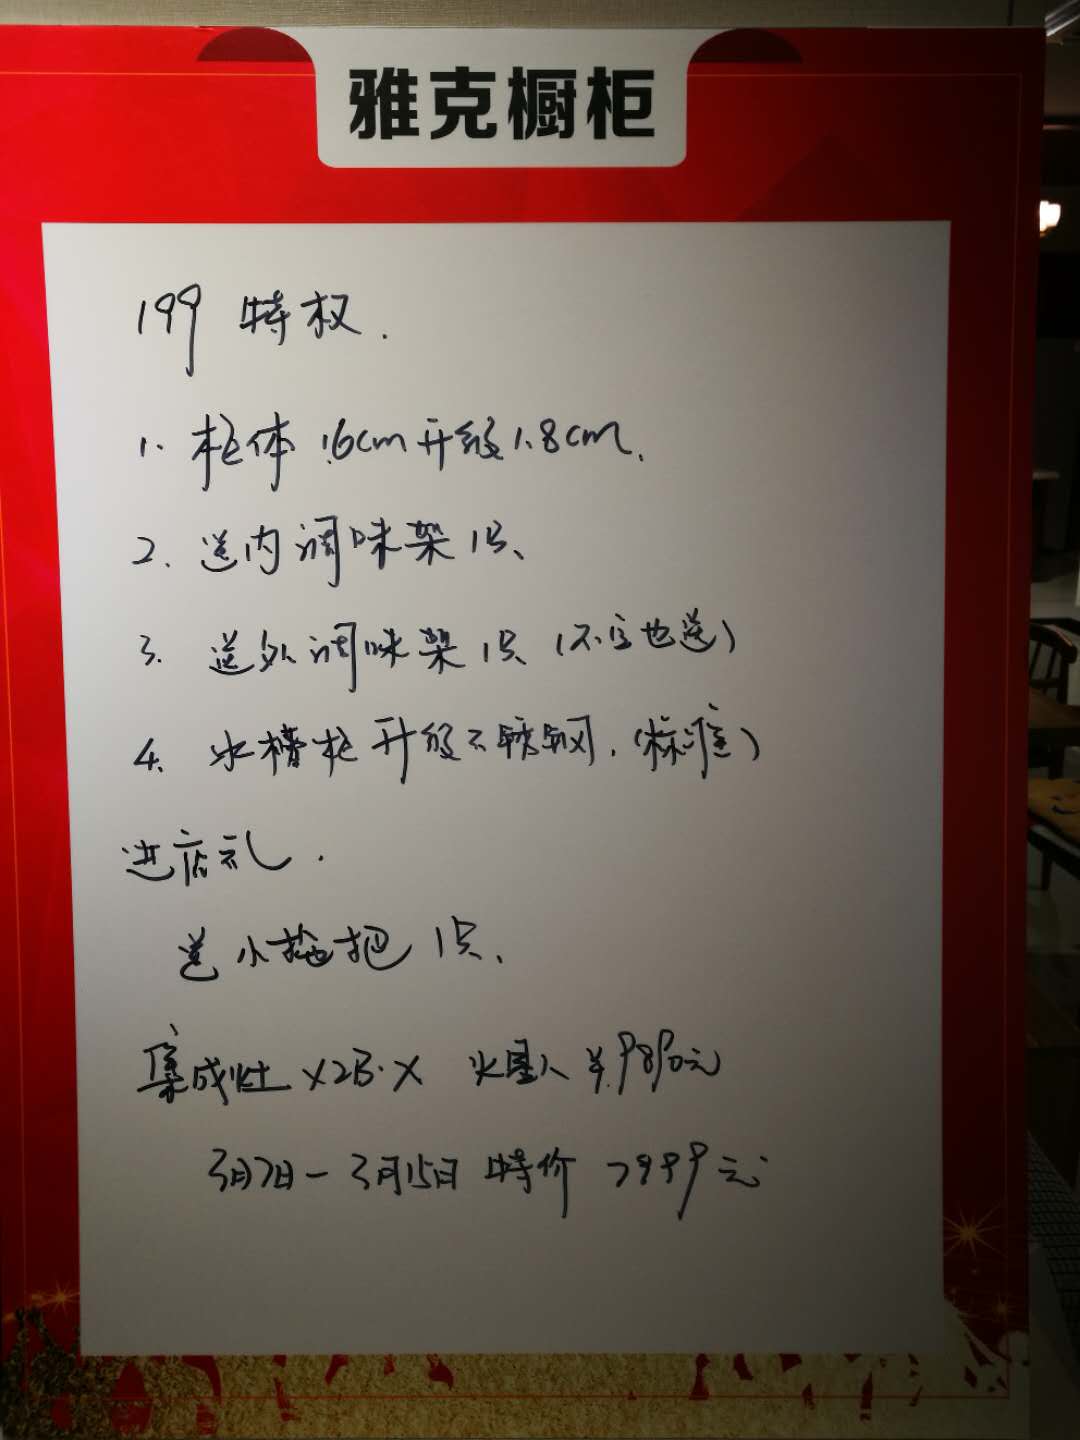 雅克橱柜
199 特权.
1. 柜体 1.6cm升级1.8cm.
2. 送内调味架1只、
3. 送外调味架1只(不定也送)
4. 水槽柜升级不锈钢.(标准)
进店礼.
送小拖把1只、
集成灶 X2B·X 火星人 ¥.9890元
3月7日-3月15日 特价 7999元